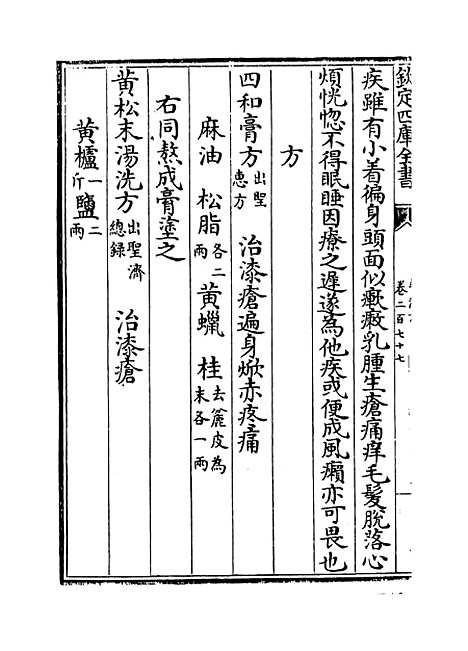 欽定四庫全書
卷二百七十七
疾雖有小着徧身頭面似㿏㿏乳腫生瘡痛痒毛髮脫落心
煩恍惚不得眠睡因療之遲遂為他疾或便成風癩亦可畏也
方
四和膏方出聖惠方 治漆瘡遍身焮赤疼痛
麻油 松脂各二兩 黄蠟 桂去麄皮為末各一兩
右同熬成膏塗之
黄松末湯洗方出聖濟總録 治漆瘡
黄櫨一斤 鹽二兩